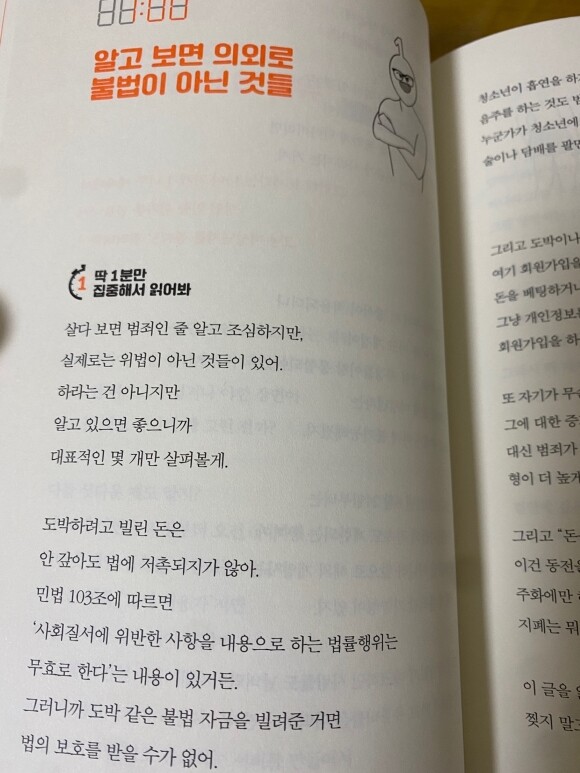 알고 보면 의외로
불법이 아닌 것들
1
딱 1분만
집중해서 읽어봐
살다 보면 범죄인 줄 알고 조심하지만,
실제로는 위법이 아닌 것들이 있어.
하라는 건 아니지만
알고 있으면 좋으니까
대표적인 몇 개만 살펴볼게.
도박하려고 빌린 돈은
안 갚아도 법에 저촉되지가 않아.
민법 103조에 따르면
‘사회질서에 위반한 사항을 내용으로 하는 법률행위는
무효로 한다’는 내용이 있거든.
그러니까 도박 같은 불법 자금을 빌려준 거면
법의 보호를 받을 수가 없어.
청소년이 흡연을 하
음주를 하는 것도
누군가가 청소년에
술이나 담배를 팔면
그리고 도박이나
여기 회원가입을
돈을 베팅하거나
그냥 개인정보
회원가입을 하
또 자기가
그에 대한
대신 범죄가
형이 더 높게
그리고 “돈
이건 동전을
주화에만
지폐는
이 글을
찢지 말